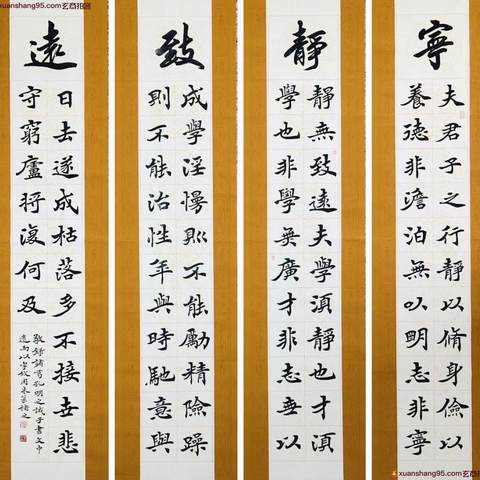 寧
夫君子之行靜以脩身儉以
養德非澹泊無以明志非寧
靜
靜無致遠夫學須靜也才須
學也非學無廣才非志無以
致
成學淫慢則不能勵精險躁
則不能治性年與時馳意與
遠
日去遂成枯落多不接世悲
守窮廬將復何及
敬錄諸葛孔明之誡子書文中
xuanshang95.com
xuanshang95.com